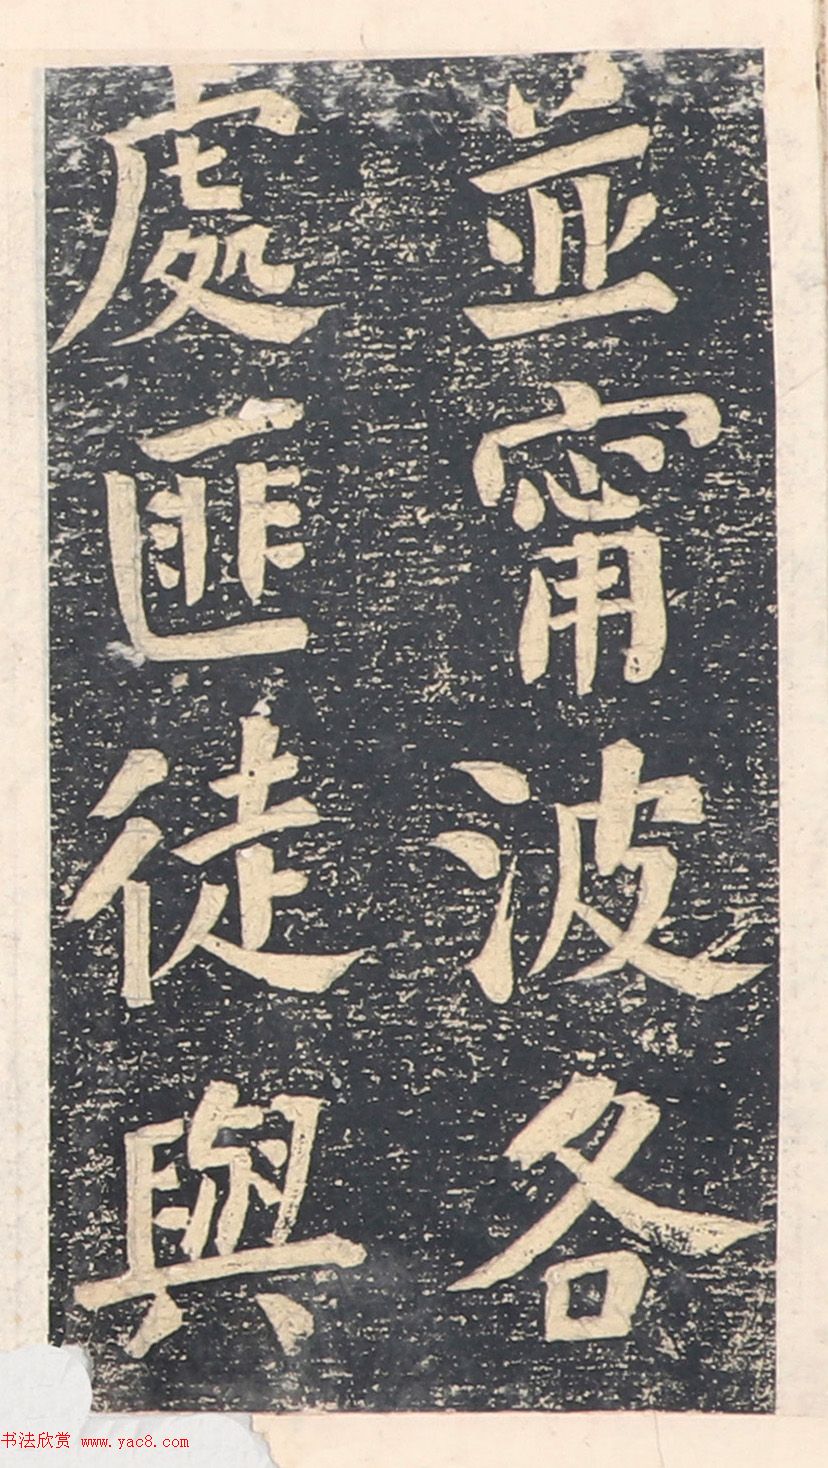 並甯波各
處匪徒與
书法欣赏 www.yac8.com